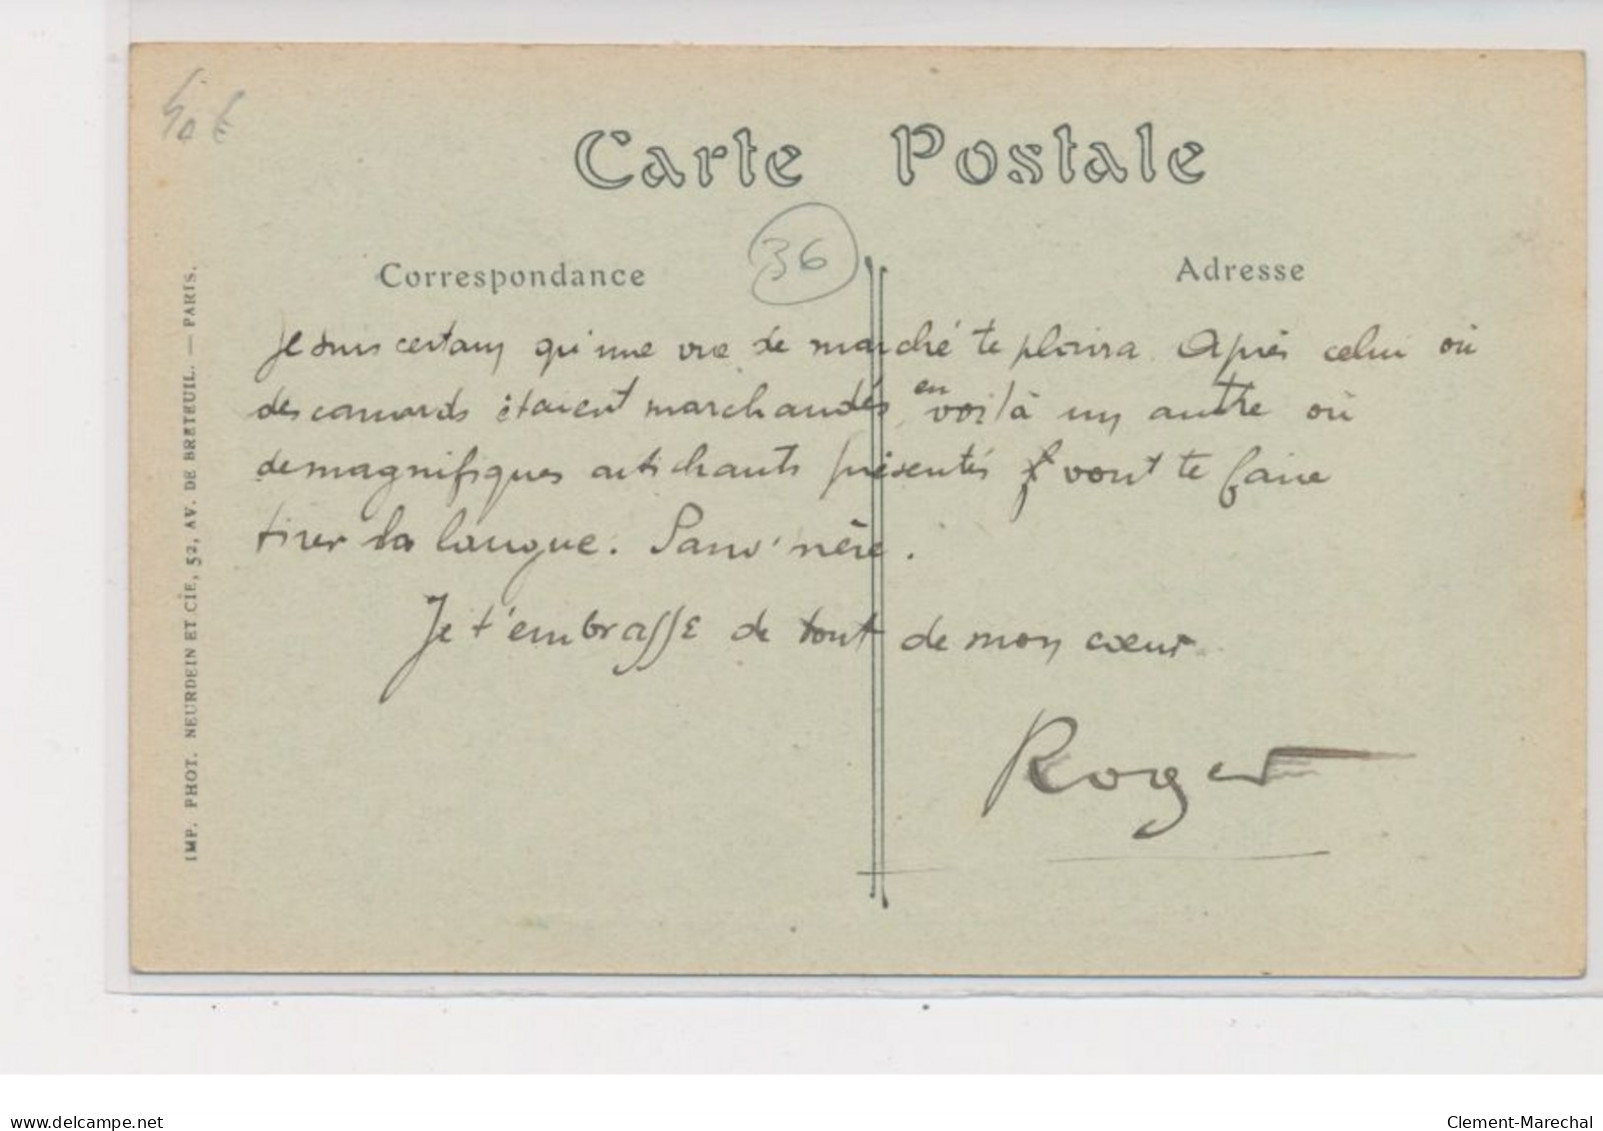 40 €
Carte Postale
36
Correspondance
Adresse
Je suis certain qu'une vue de marché te plaira. Après celui où
des canards étaient marchandés, en voilà un autre où
de magnifiques artichauts présentés vont te faire
tirer la langue.
Je t'embrasse de tout de mon cœur
Roger
IMP. PHOT. NEURDEIN ET CIE, 52, AV. DE BRETEUIL. — PARIS.
delcampe.net
Clement-Marechal